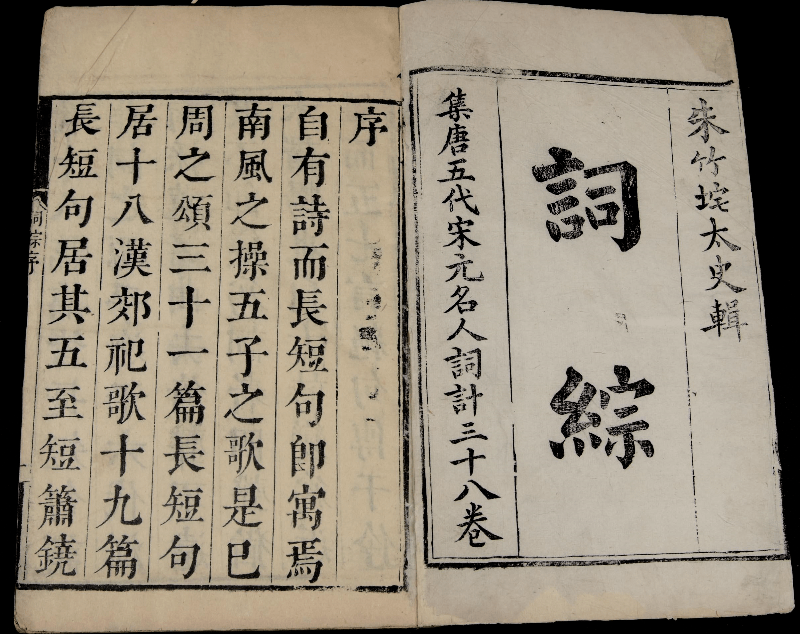 朱竹垞太史輯
詞綜
集唐五代宋元名人詞計三十八卷
序
自有詩而長短句即寓焉
南風之操五子之歌是已
周之頌三十一篇長短句
居十八漢郊祀歌十九篇
長短句居其五至短簫鐃
詞綜序